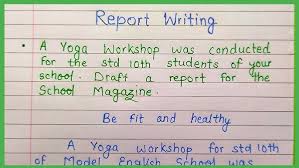 Report Writing
• A Yoga Workshop was conducted
for the std 10th students of your
school. Draft a report for the
School Magazine.
Be fit and healthy
A Yoga workshop for std 10th
of Model English School was